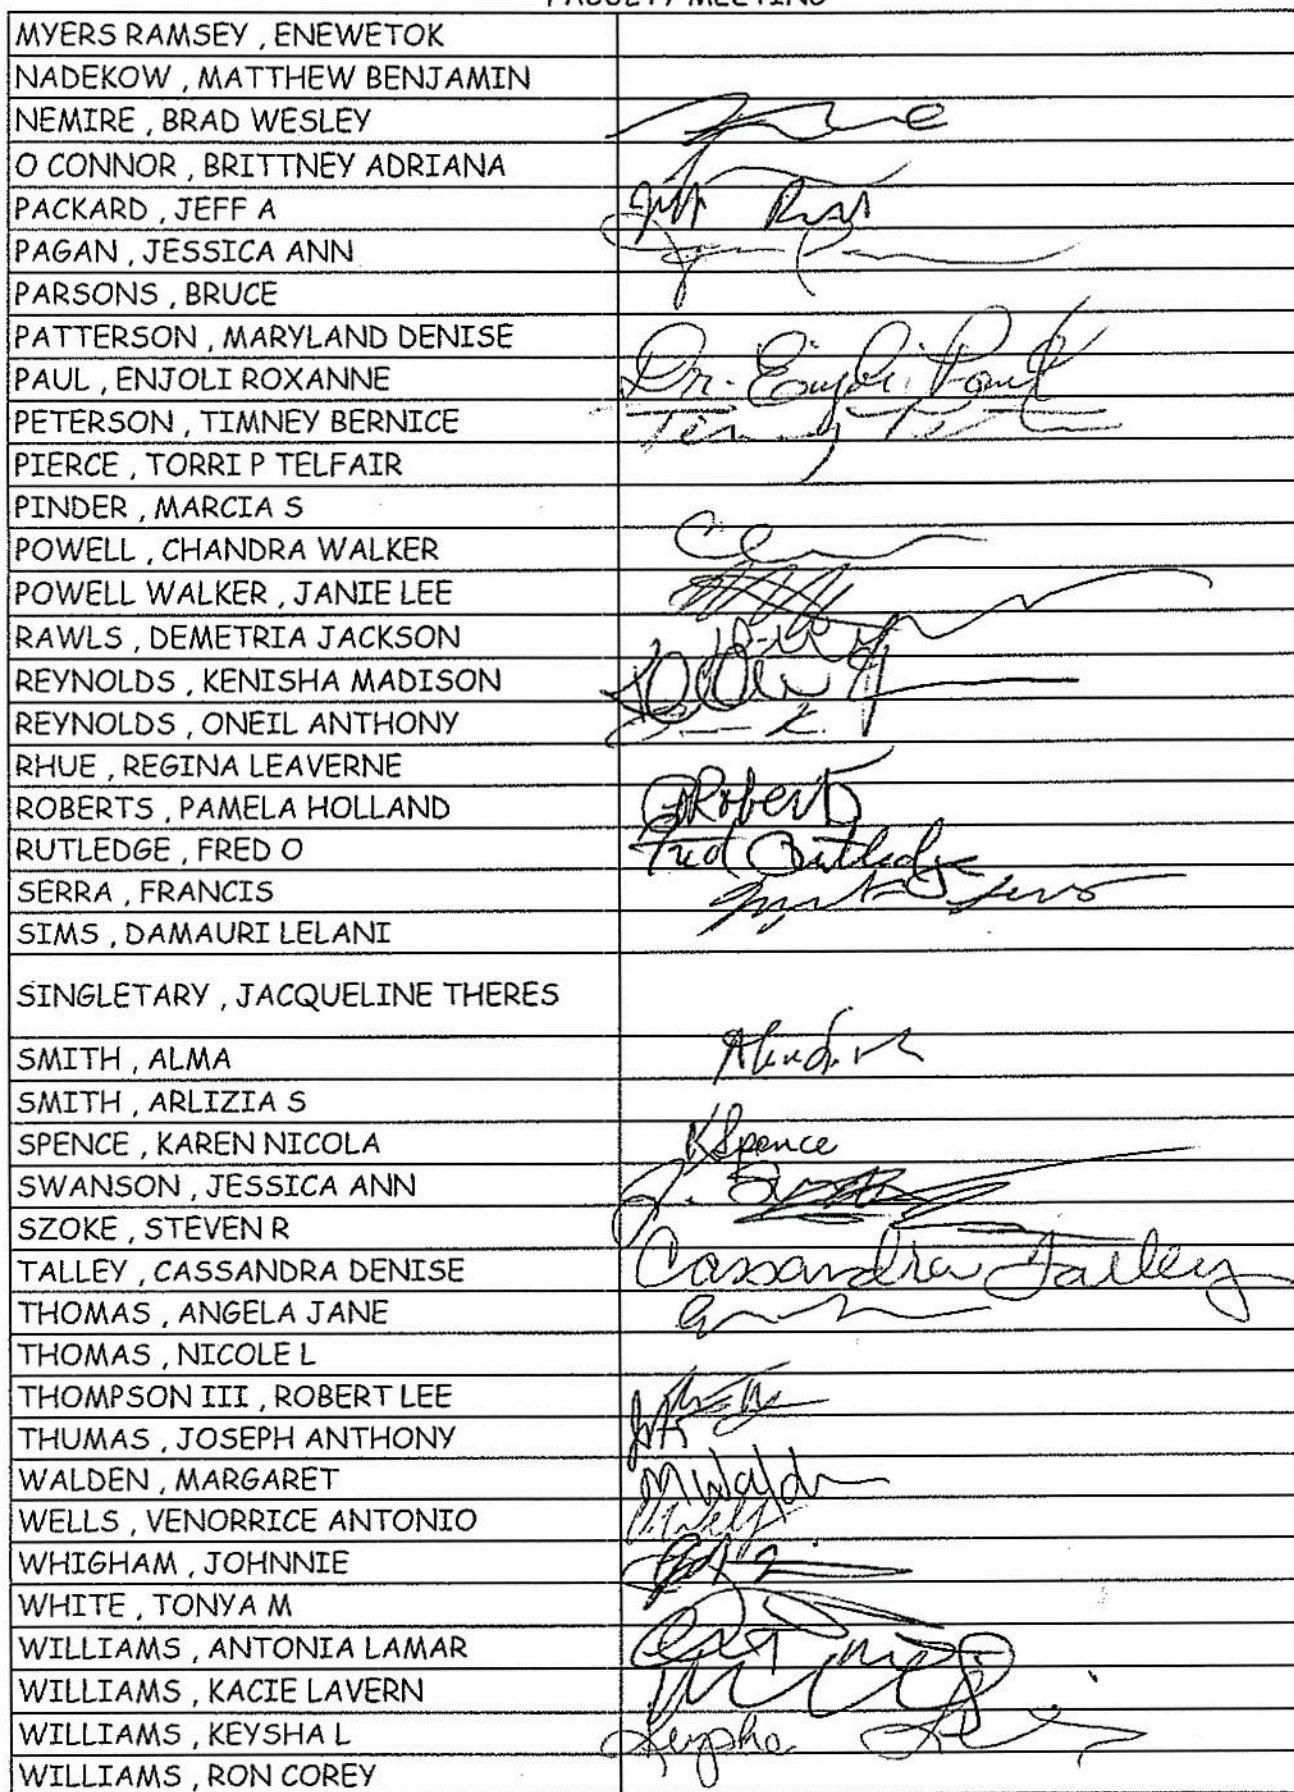 FACULTY MEETING
MYERS RAMSEY , ENEWETOK
NADEKOW , MATTHEW BENJAMIN
NEMIRE , BRAD WESLEY
O CONNOR , BRITTNEY ADRIANA
PACKARD , JEFF A
PAGAN , JESSICA ANN
PARSONS , BRUCE
PATTERSON , MARYLAND DENISE
PAUL , ENJOLI ROXANNE Dr. Enjoli Paul
PETERSON , TIMNEY BERNICE
PIERCE , TORRI P TELFAIR
PINDER , MARCIA S
POWELL , CHANDRA WALKER
POWELL WALKER , JANIE LEE
RAWLS , DEMETRIA JACKSON
REYNOLDS , KENISHA MADISON
REYNOLDS , ONEIL ANTHONY
RHUE , REGINA LEAVERNE
ROBERTS , PAMELA HOLLAND PRoberts
RUTLEDGE , FRED O Fred Rutledge
SERRA , FRANCIS
SIMS , DAMAURI LELANI
SINGLETARY , JACQUELINE THERES
SMITH , ALMA
SMITH , ARLIZIA S
SPENCE , KAREN NICOLA KSpence
SWANSON , JESSICA ANN
SZOKE , STEVEN R
TALLEY , CASSANDRA DENISE Cassandra Talley
THOMAS , ANGELA JANE
THOMAS , NICOLE L
THOMPSON III , ROBERT LEE
THUMAS , JOSEPH ANTHONY
WALDEN , MARGARET MWalden
WELLS , VENORRICE ANTONIO
WHIGHAM , JOHNNIE
WHITE , TONYA M
WILLIAMS , ANTONIA LAMAR
WILLIAMS , KACIE LAVERN
WILLIAMS , KEYSHA L Keysha
WILLIAMS , RON COREY